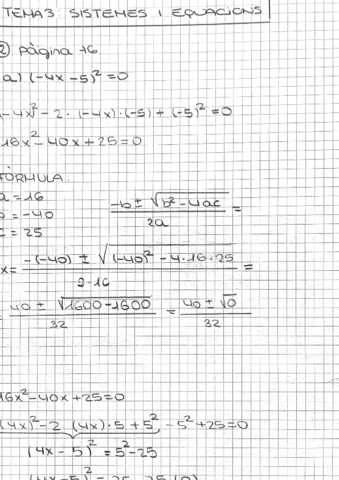 TEMA 3: SISTEMES I EQUACIONS
2) pàgina 76
a) (-4x-5)²=0
-4x)²-2·(-4x)·(-5)+(-5)²=0
16x²-40x+25=0
FÒRMULA:
a=16
b=-40
c=25
-b±√b²-4ac / 2a =
x= -(-40) ± √(-40)²-4·16·25 / 2·16 =
= 40 ± √1600-1600 / 32 = 40 ± √0 / 32
16x²-40x+25=0
(4x)²-2(4x)·5+5²-5²+25=0
(4x-5)²=5²-25